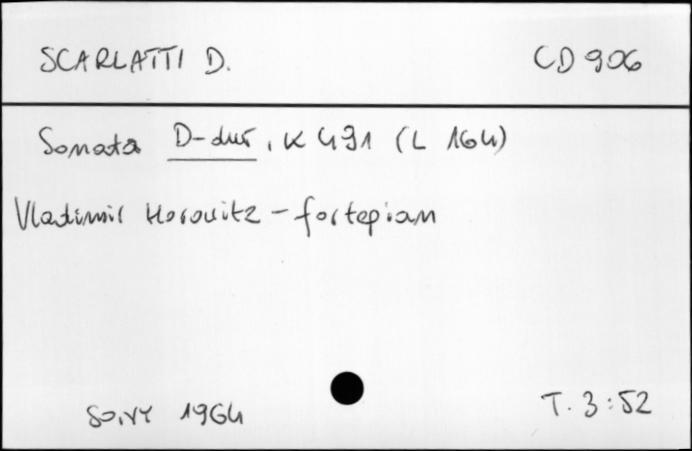 SCARLATTI D. CD 906
Sonata D-dur, K 491 (L 164)
Vladimir Horowitz - fortepian
SONY 1964 T. 3:52